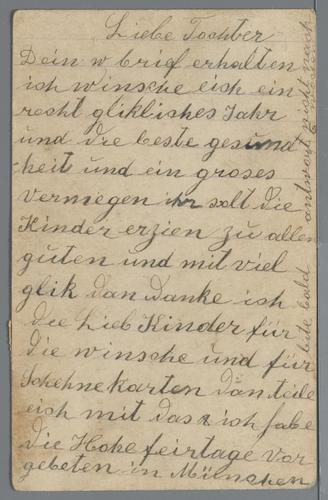 Liebe Tochter
Dein w brief erhalten
ich winsche eich ein
recht glikliches Jahr
und die beste gesund
heit und ein groses
vermegen ihr solt die
Kinder erzien zu allen
guten und mit viel
glik dan Danke ich
die Lieb Kinder für
die winsche und für
Schehne karten Dan teile
eich mit das ich habe
die Hohe feirtage vor
gebeten in München
bite bald antwort nicht nach